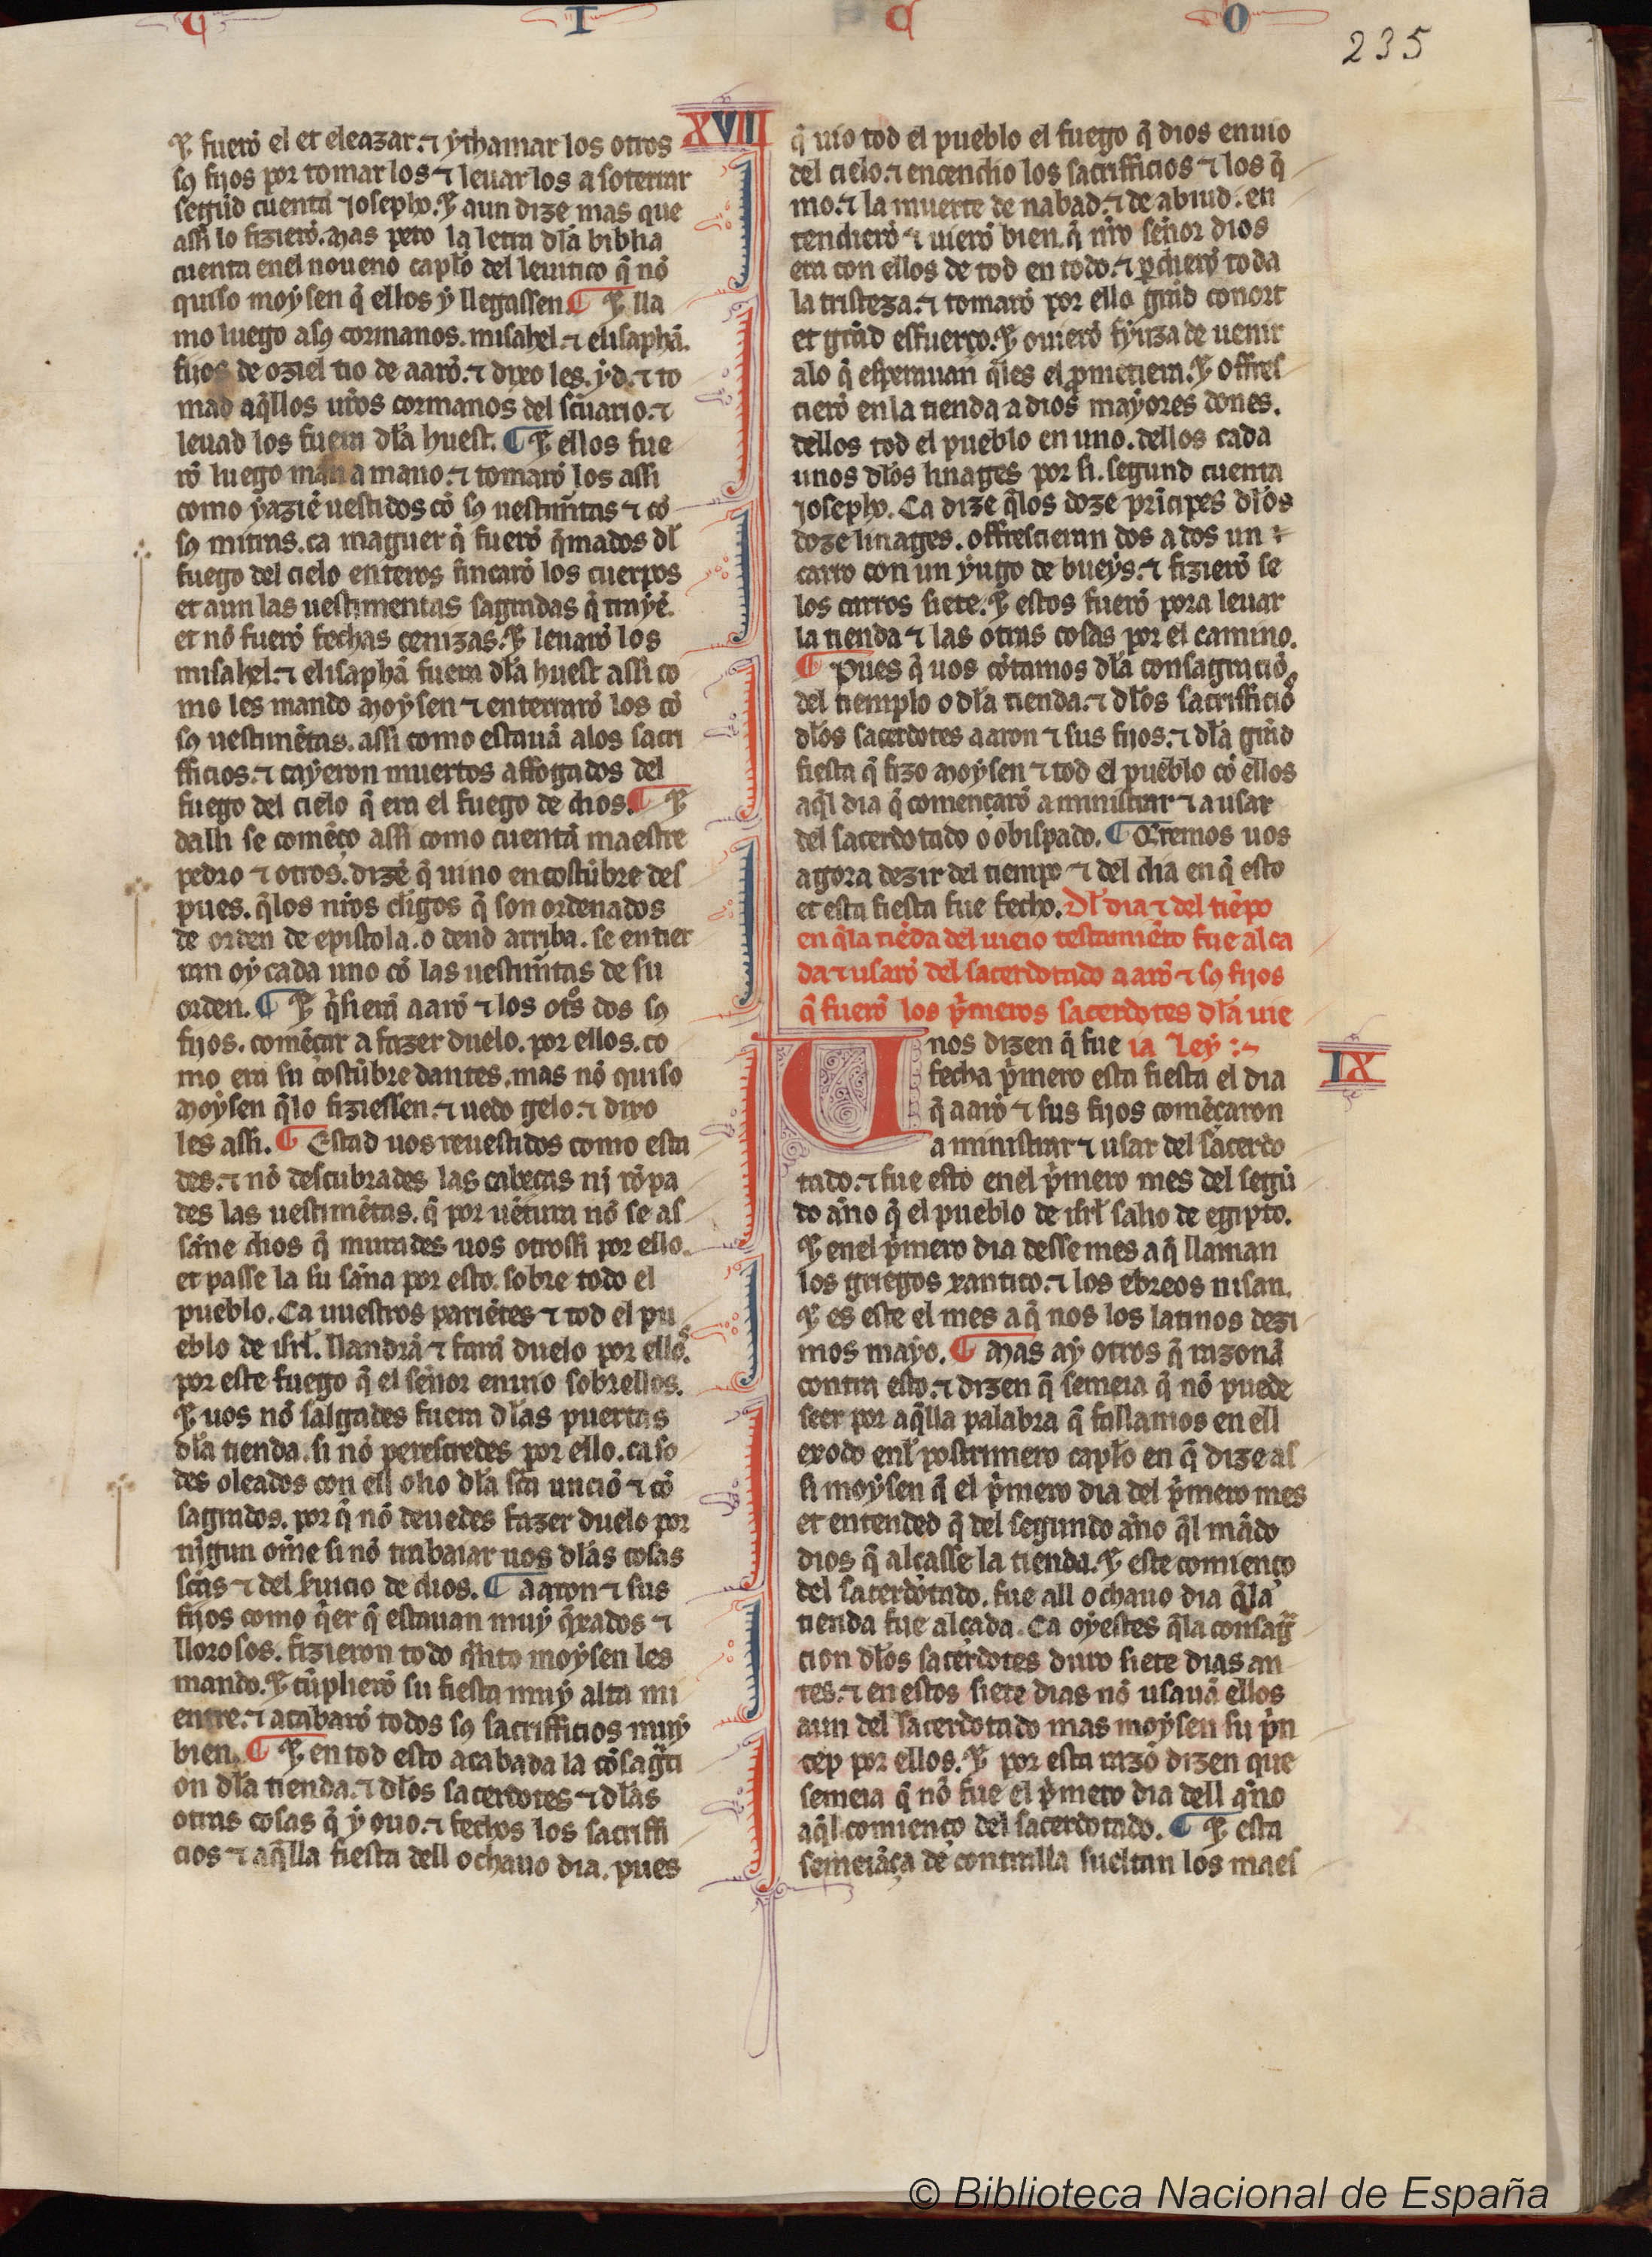 U I C O
235
XVIII
⁊ fuerõ el et eleazar.⁊ ythamar los otros
sꝯ fijos por tomar los ⁊ leuar los a soterrar
segũd cuenta iosepho. ⁊ aun dize mas que
assi lo fizierõ. mas pero la letra dła biblia
cuenta enel noueno capło del leuitico q̃ nõ
quiso moysen q̃ ellos y llegassen. ¶ ⁊ lla
mo luego asꝯ cormanos. misahel.⁊ elisaphã.
fijos de oziel tio de aarõ.⁊ dixo les. yd.⁊ to
mad aq̃llos ur̃os cormanos del sc̃uario.⁊
leuad los fuera dła huest. ¶ ⁊ ellos fue
rõ luego man a mano.⁊ tomarõ los assi
como yaziẽ uestidos cõ sꝯ uestim̃tas ⁊ cõ
sꝯ mitras. ca maguer q̃ fuerõ q̃mados dł
fuego del cielo enteros fincarõ los cuerpos
et aun las uestimentas sagradas q̃ trayẽ.
et nõ fuerõ fechas cenizas. ⁊ leuarõ los
misahel.⁊ elisaphã fuera dła huest assi co
mo les mando moysen ⁊ enterrarõ los cõ
sꝯ uestimẽtas. assi como estauã alos sacri
fficios.⁊ cayeron muertos affogados del
fuego del cielo q̃ era el fuego de dios. ¶ ⁊
dalli se comẽço assi como cuentã maestre
pedro ⁊ otros. dizẽ q̃ uino en costũbre des
pues. q̃los nr̃os cl̃igos q̃ son ordenados
de orden de epistola. o dend arriba. se entier
ran oy cada uno cõ las uestim̃tas de su
orden. ¶ ⁊ q̃sierã aarõ ⁊ los otr̃s dos sꝯ
fijos. comẽçar a fazer duelo. por ellos. co
mo era su costũbre dantes. mas nõ quiso
moysen q̃lo fiziessen.⁊ uedo gelo.⁊ dixo
les assi. ¶ Estad uos reuestidos como esta
des.⁊ nõ descubrades las cabeças nj rõpa
des las uestimẽtas. q̃ por uẽtura nõ se as
sãne dios q̃ murades uos otrossi por ello.
et passe la su sãna por esto. sobre todo el
pueblo. Ca uuestros pariẽtes ⁊ tod el pu
eblo de isrł. llandrã ⁊ farã duelo por ellos.
por este fuego q̃ el señor enuio sobrellos.
⁊ uos nõ salgades fuera dłas puertas
dła tienda. si nõ perescredes por ello. ca so
des oleados con ell olio dła sc̃a unciõ ⁊ cõ
sagrados. por q̃ nõ deuedes fazer duelo por
nĩgun om̃e si nõ trabaiar uos dłas cosas
sc̃as ⁊ del s̃uicio de dios. ¶ aaron ⁊ sus
fijos como q̃er q̃ estauan muy q̃xados ⁊
llorosos. fizieron todo q̃nto moysen les
mando. ⁊ cũplierõ su fiesta muy alta mi
entre.⁊ acabarõ todos sꝯ sacrifficios muy
bien. ¶ ⁊ en tod esto acabada la cõsagr̃ti
on dła tienda.⁊ dłos sacerdotes ⁊ dłas
otras cosas q̃ y ouo.⁊ fechos los sacriffi
cios ⁊ aq̃lla fiesta dell ochauo dia. pues
q̃ uio tod el pueblo el fuego q̃ dios enuio
del cielo.⁊ encendio los sacrifficios ⁊ los q̃
mo.⁊ la muerte de nabad.⁊ de abiud. en
tendierõ ⁊ uierõ bien. q̃ nr̃o señor dios
era con ellos de tod en todo.⁊ ꝑdierõ toda
la tristeza.⁊ tomarõ por ello grãd conort
et grãd esfuerço. ⁊ ouierõ fyuza de uenir
alo q̃ esperauan q̃les el ꝓmetiera. ⁊ offres
cierõ en la tienda a dios mayores dones.
dellos tod el pueblo en uno. dellos cada
unos dłos linages por si. segund cuenta
iosepho. Ca dize q̃los doze prĩcipes dłos
doze linages. offrescieran dos a dos un
carro con un yugo de bueys.⁊ fizierõ se
los carros siete. ⁊ estos fuerõ pora leuar
la tienda ⁊ las otras cosas por el camino.
¶ Pues q̃ uos cõtamos dła consagraciõ
del tiemplo o dła tienda.⁊ dłos sacrificiõ
dłos sacerdotes aaron ⁊ sus fijos.⁊ dła grãd
fiesta q̃ fizo moysen ⁊ tod el pueblo cõ ellos
aq̃l dia q̃ començarõ a ministrar ⁊ a usar
del sacerdotado o obispado. ¶ Q̃remos uos
agora dezir del tiempo ⁊ del dia en q̃ esto
et esta fiesta fue fecho. Dł dia ⁊ del tiẽpo
en q̃la tiẽda del uieio testamiẽto fue alça
da ⁊ usarõ del sacerdotado aarõ ⁊ sꝯ fijos
q̃ fuerõ los p̃meros sacerdotes dła uie
Unos dizen q̃ fue ia Ley :~
IX
fecha p̃mero esta fiesta el dia
q̃ aarõ ⁊ sus fijos comẽçaron
a ministrar ⁊ usar del sacerdo
tado.⁊ fue esto enel p̃mero mes del segũ
do año q̃ el pueblo de isrł salio de egipto.
⁊ enel p̃mero dia desse mes a q̃ llaman
los griegos xantico.⁊ los ebreos nisan.
⁊ es este el mes a q̃ nos los latinos dezi
mos mayo. ¶ mas ay otros q̃ razonã
contra esto.⁊ dizen q̃ semeia q̃ nõ puede
seer por aq̃lla palabra q̃ fallamos en ell
exodo enł postrimero capło en q̃ dize as
si moysen q̃ el p̃mero dia del p̃mero mes
et entended q̃ del segundo año q̃l mãdo
dios q̃ alçasse la tienda. ⁊ este comienço
del sacerdotado. fue all ochauo dia q̃la
tienda fue alçada. Ca oyestes q̃la consagr̃
cion dłos sacerdotes duro siete dias an
tes.⁊ en estos siete dias nõ usauã ellos
aun del sacerdotado mas moysen su p̃n
cep por ellos. ⁊ por esta razõ dizen que
semeia q̃ nõ fue el p̃mero dia dell año
aq̃l comienço del sacerdotado. ¶ ⁊ esta
semeiãça de contralla sueltan los maes
© Biblioteca Nacional de España